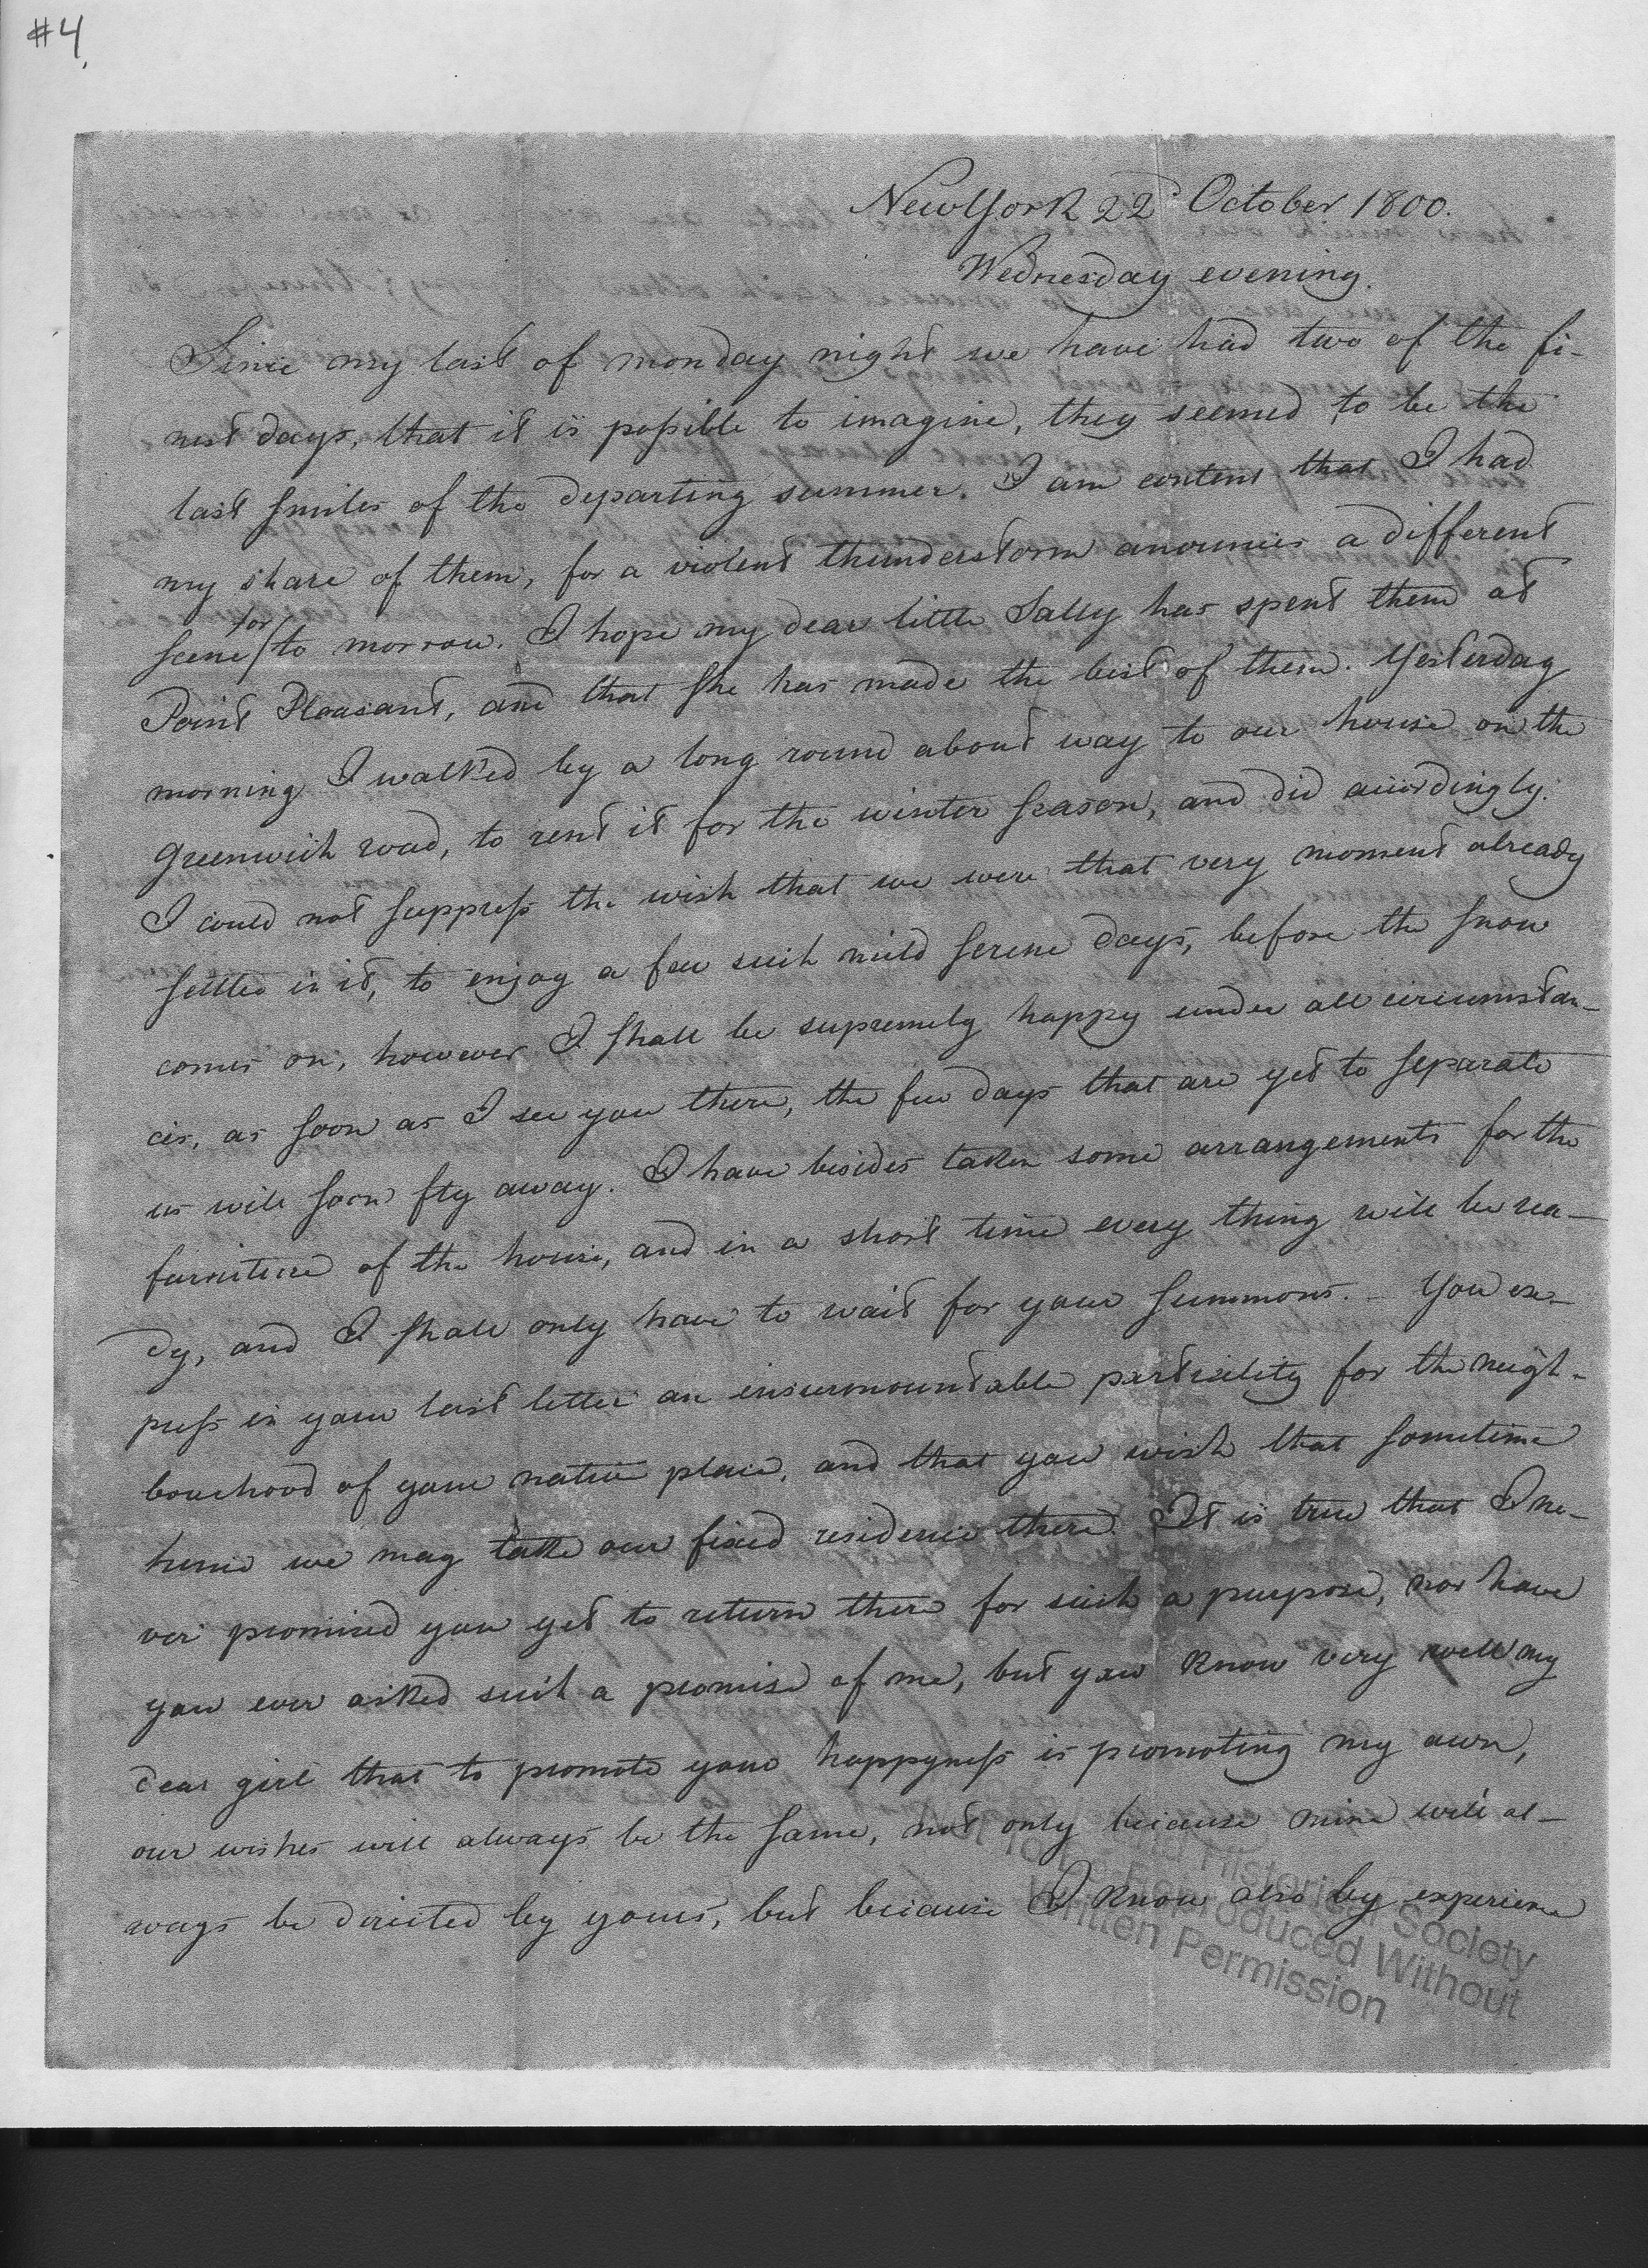 #4
NewYork 22d October 1800.
Wednesday evening.
Since my last of monday night we have had two of the fi-
nest days, that it is possible to imagine, they seemed to be the
last smiles of the departing summer. I am content that I had
my share of them, for a violent thunderstorm anounces a different
scene for to morrow. I hope my dear little Sally has spent them at
Point Pleasant, and that she has made the best of them. Yesterday
morning I walked by a long round about way to our house on the
Greenwich road, to rent it for the winter season, and did accordingly.
I could not suppress the wish that we were that very moment already
settled in it, to enjoy a few such mild serene days, before the snow
comes on, however I shall be supremely happy under all circumstan-
ces, as soon as I see you there, the few days that are yet to separate
us will soon fly away. I have besides taken some arrangements for the
furniture of the house, and in a short time every thing will be rea-
dy, and I shall only have to wait for your summons. - You ex-
press in your last letter an insurmountable partiality for the neigh-
bourhood of your native place, and that you wish that sometime
hence we may take our fixed residence there. It is true that I ne-
ver promised you yet to return there for such a purpose, nor have
you ever asked such a promise of me, but you know very well my
dear girl that to promote your happyness is promoting my own,
our wishes will always be the same, not only because mine will al-
ways be directed by yours, but because I know also by experience
Historical Society
to be Reproduced Without
Written Permission